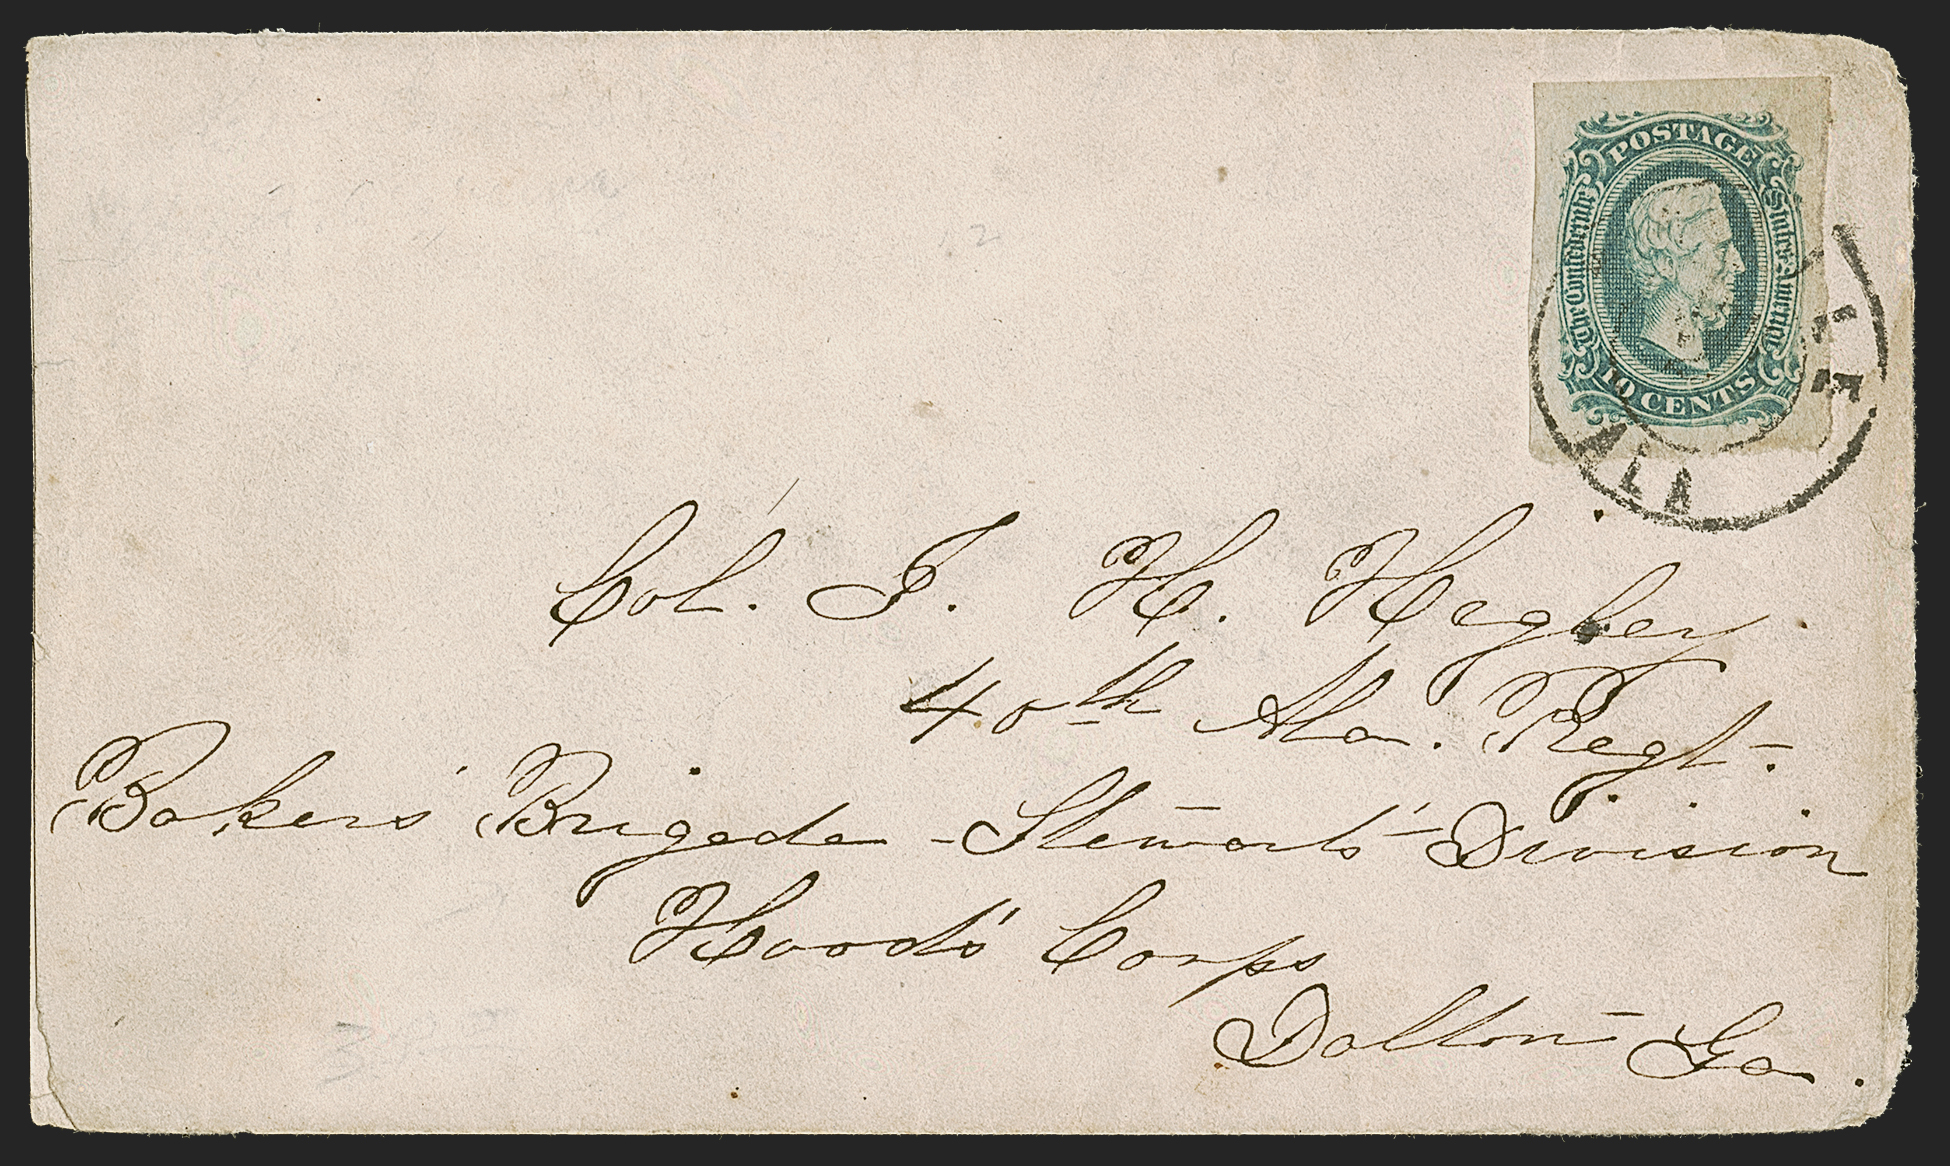 POSTAGE
The Confederate States America
10 CENTS
LLE
ALA
Col. J. H. Higley
40th Ala. Regt.
Bakers' Brigade - Stewarts' Division
Hoods' Corps
Dalton Ga.